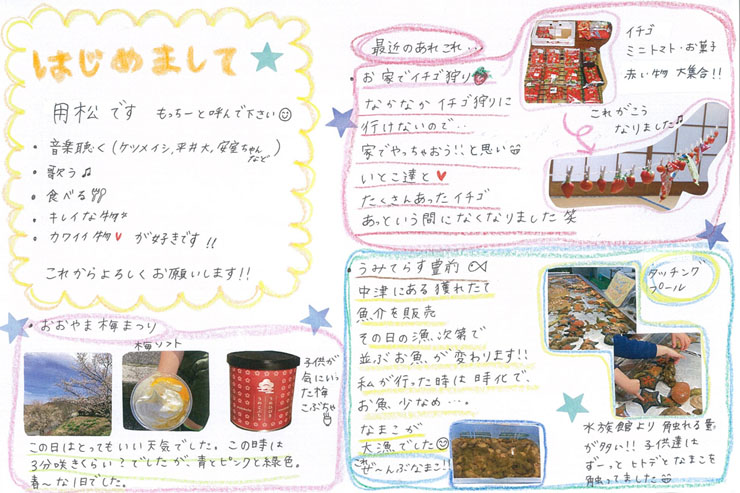 はじめまして
用松です もっちーと呼んで下さい
・音楽聴く(ケツメイシ,平井大,安室ちゃんなど)
・歌う♫
・食べる
・キレイな物
・カワイイ物♥ が好きです!!
これからよろしくお願いします!!
・おおやま梅まつり
梅ソフト
子供が
気にいっ
た梅
こぶちゃ
この日はとってもいい天気でした。この時は
3分咲きくらい?でしたが、青とピンクと緑色。
春〜な1日でした。
最近のあれこれ…
・お家でイチゴ狩り
なかなかイチゴ狩りに
行けないので…
家でやっちゃおう!!と思い
いとこ達と♥
たくさんあったイチゴ
あっという間になくなりました 笑
イチゴ
ミニトマト・お菓子
赤い物 大集合!!
これがこう
なりました♫
・うみてらす豊前
中津にある獲れたて
魚介を販売
その日の漁、次第で
並ぶお魚、が変わります!!
私が行った時は時化で、
お魚、少なめ…。
なまこが
大漁でした
ぜ〜んぶなまこ!!
タッチング
プール
水族館より触れる量
が多い!! 子供達は
ずーっとヒトデとなまこを
触ってました